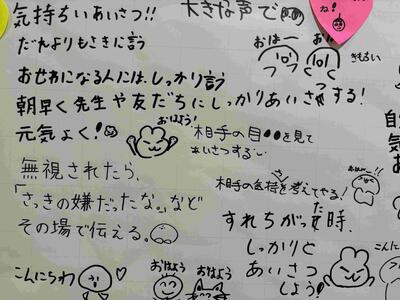 気持ちいあいさつ!!
大きな声で
ね!
だれよりもさきに言う
おはー
きもちい
おせわになる人には、しっかり言う
朝早く先生や友だちにしっかりあいさつする!
元気よく!
おはよう!
相手の目●●を見て
あいさつする
無視されたら、
「さっきの嫌だったな。」など
その場で伝える。
相手の気持を考えてやる!
すれちがった時、
しっかりと
あいさつ
しよう
こんにちわ
おはよう
おはよう